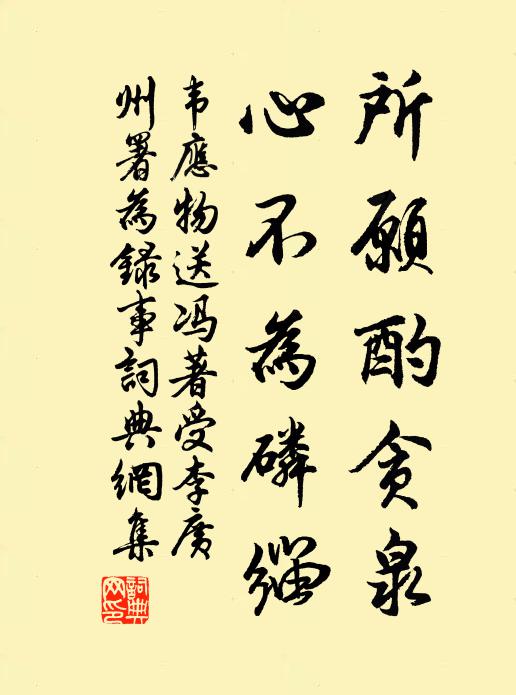 所願酌貪泉
心不為磷緇
韦應物送冯著受李廣
州署為錄事詞典網集